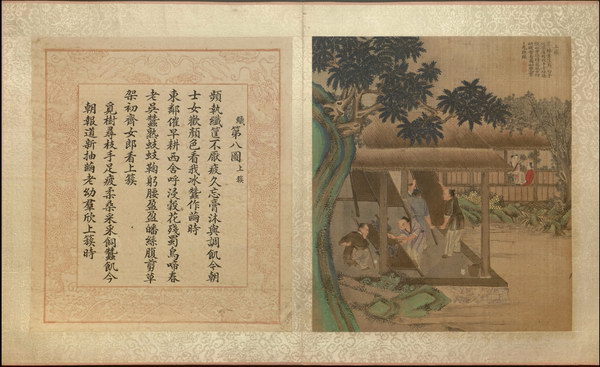 織 第八圖 上簇
頻執纖筐不厭疲久忘膏沐與調飢今朝
士女歡顏色看我冰蠶作繭時
東鄰催早耕西舍呼浸穀花殘蜀鳥啼春
老吳蠶熟歧歧鞠躬腰盈盈皤絲腹剪草
架初齊女郎看上簇
覓樹尋枝手足疲柔桑采采飼蠶飢今
朝報道新抽繭老幼羣欣上簇時